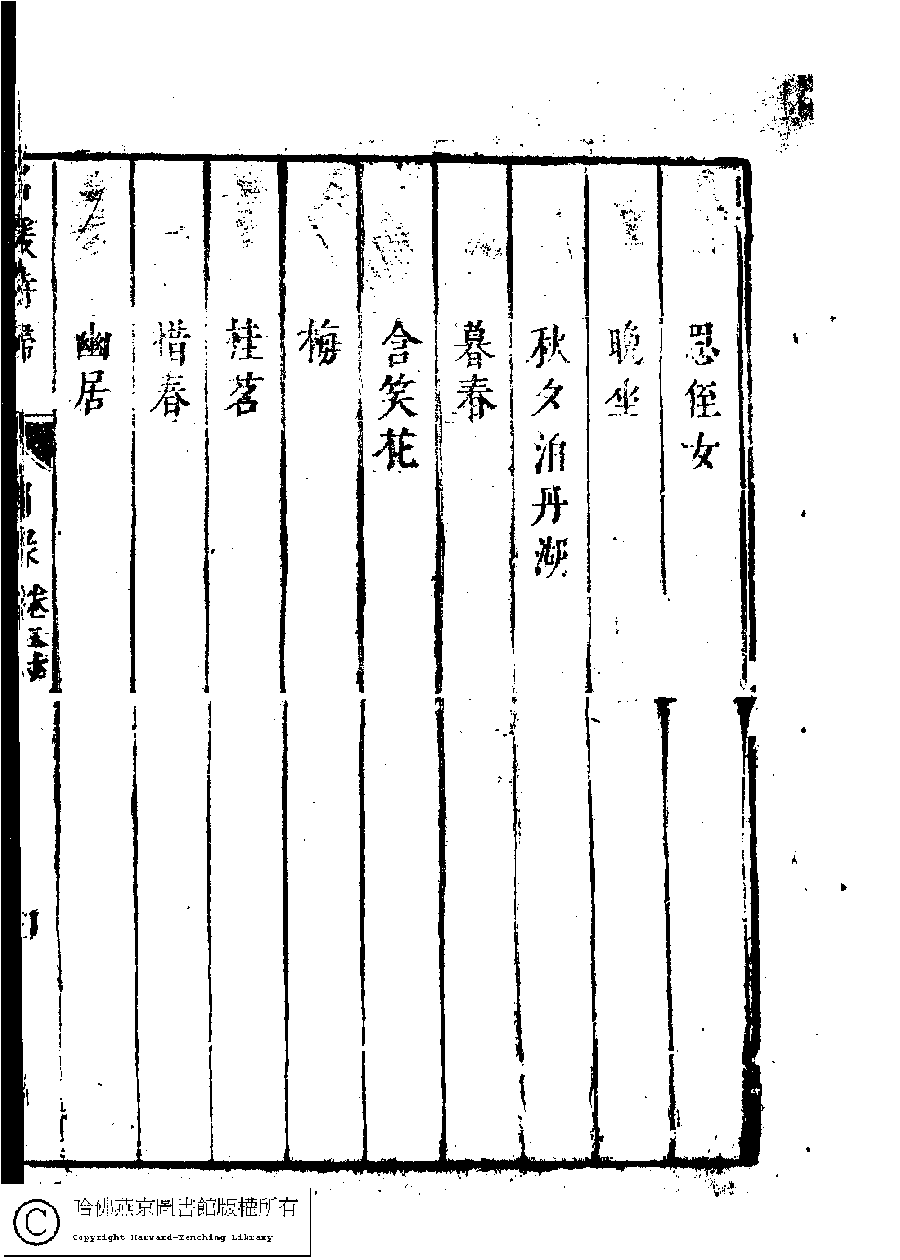 思侄女
晚坐
秋夕泊丹湖
暮春
含笑花
梅
桂茗
惜春
幽居
名媛詩歸
哈佛燕京圖書館版權所有
Copyright Harvard-Yenching Library